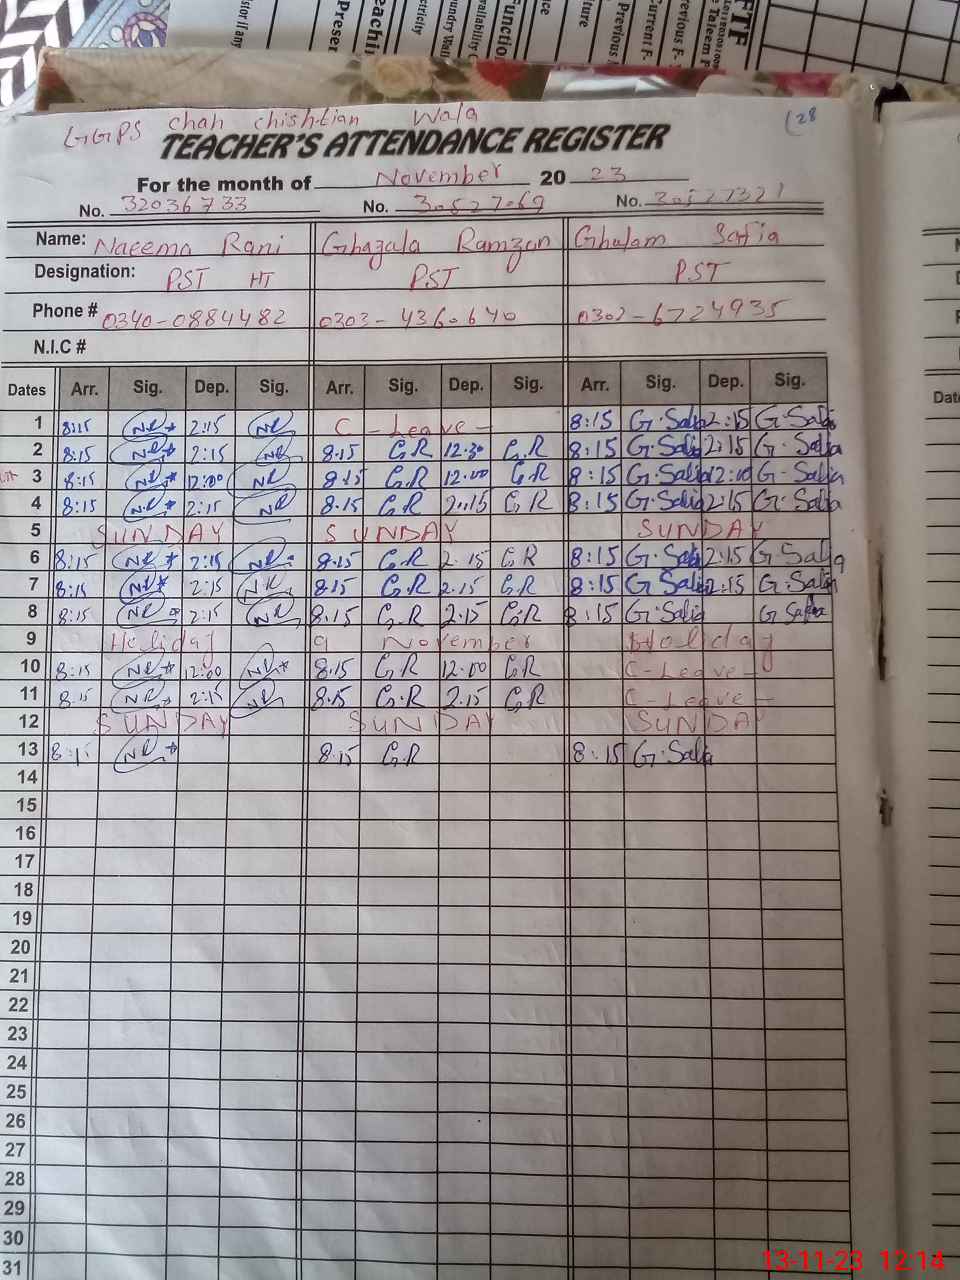 GGPS chah chishtian Wala
28
TEACHER'S ATTENDANCE REGISTER
For the month of November 20 23
No. 32036733 No. 30527069 No. 30527321
Name: Naeema Rani Ghazala Ramzan Ghulam Safia
Designation: PST HT PST PST
Phone # 0340-0884482 0303-4360640 0302-6724935
N.I.C #
Dates Arr. Sig. Dep. Sig. Arr. Sig. Dep. Sig. Arr. Sig. Dep. Sig.
1 8:15 NR 2:15 NR C-Leave- 8:15 G.Safia 2:15 G.Safia
2 8:15 NR 2:15 NR 8.15 G.R 12.30 G.R 8:15 G.Safia 2:15 G.Safia
3 8:15 NR 12:00 NR 8.15 G.R 12.00 G.R 8:15 G.Safia 12:00 G-Safia
4 8:15 NR 2:15 NR 8.15 G.R 2.15 G.R 8:15 G.Safia 2:15 G.Safia
5 SUNDAY SUNDAY SUNDAY
6 8:15 NR 2:15 NR 8.15 G.R 2.15 G.R 8:15 G.Safia 2:15 G Safia
7 8:15 NR 2:15 NR 8.15 G.R 2.15 G.R 8:15 G.Safia 2:15 G.Safia
8 8:15 NR 2:15 NR 8.15 G.R 2.15 G.R 8:15 G.Safia G Safia
9 Holiday 9 November Holiday
10 8:15 NR 12:00 NR 8.15 G.R 12.00 G.R C-Leave-
11 8.15 NR 2:15 NR 8.15 G.R 2.15 G.R C-Leave-
12 SUNDAY SUNDAY SUNDAY
13 8:15 NR 8.15 G.R 8:15 G.Safia
14
15
16
17
18
19
20
21
22
23
24
25
26
27
28
29
30
31
13-11-23 12:14